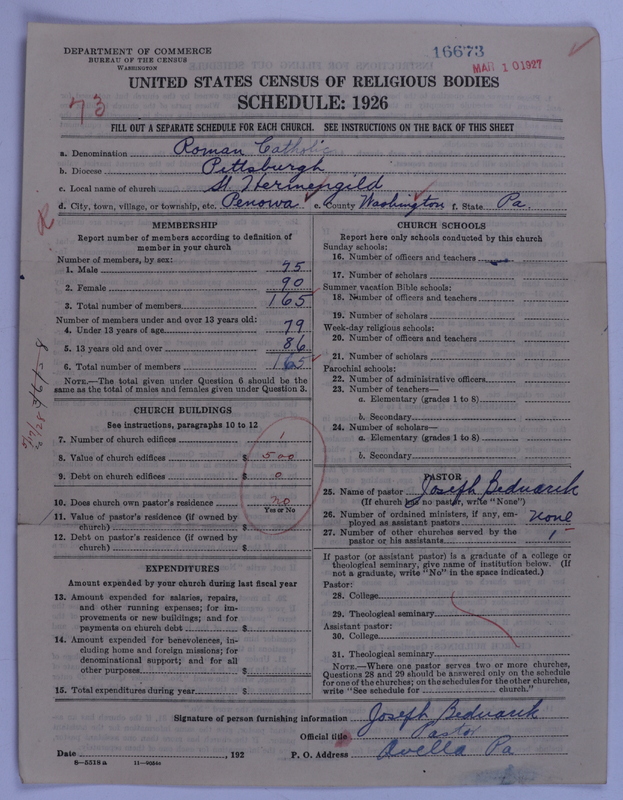 DEPARTMENT OF COMMERCE
BUREAU OF THE CENSUS
WASHINGTON
16673
MAR 10 1927
UNITED STATES CENSUS OF RELIGIOUS BODIES
SCHEDULE: 1926
73
FILL OUT A SEPARATE SCHEDULE FOR EACH CHURCH. SEE INSTRUCTIONS ON THE BACK OF THIS SHEET
a. Denomination Roman Catholic
b. Diocese Pittsburgh
c. Local name of church St. Hermengild
d. City, town, village, or township, etc. Penowa e. County Washington f. State Pa.
R
MEMBERSHIP
Report number of members according to definition of
member in your church
Number of members, by sex:
1. Male 75
2. Female 90
3. Total number of members 165
Number of members under and over 13 years old:
4. Under 13 years of age 79
5. 13 years old and over 86
6. Total number of members 165
NOTE.—The total given under Question 6 should be
same as the total of males and females given under Question 3.
CHURCH BUILDINGS
See instructions, paragraphs 10 to 12
7. Number of church edifices 1
8. Value of church edifices $ 500
9. Debt on church edifices $ 0
10. Does church own pastor's residence no
Yes or No
11. Value of pastor's residence (if owned by
church) $
12. Debt on pastor's residence (if owned by
church) $
EXPENDITURES
Amount expended by your church during last fiscal year
13. Amount expended for salaries, repairs,
and other running expenses; for im-
provements or new buildings; and for
payments on church debt $
14. Amount expended for benevolences, in-
cluding home and foreign missions; for
denominational support; and for all
other purposes $
15. Total expenditures during year $
CHURCH SCHOOLS
Report here only schools conducted by this church
Sunday schools:
16. Number of officers and teachers
17. Number of scholars
Summer vacation Bible schools:
18. Number of officers and teachers
19. Number of scholars
Week-day religious schools:
20. Number of officers and teachers
21. Number of scholars
Parochial schools:
22. Number of administrative officers
23. Number of teachers—
a. Elementary (grades 1 to 8)
b. Secondary
24. Number of scholars—
a. Elementary (grades 1 to 8)
b. Secondary
PASTOR
25. Name of pastor Joseph Bednarik
(If church has no pastor, write "None")
26. Number of ordained ministers, if any, em-
ployed as assistant pastors none
27. Number of other churches served by the
pastor or his assistants 1
If pastor (or assistant pastor) is a graduate of a college or
theological seminary, give name of institution below. (If
not a graduate, write "No" in the space indicated.)
Pastor:
28. College
29. Theological seminary
Assistant pastor:
30. College
31. Theological seminary
NOTE.—Where one pastor serves two or more churches,
Questions 28 and 29 should be answered only on the schedule
for one of the churches; on the schedules for the other churches,
write "See schedule for church."
Signature of person furnishing information Joseph Bednarik
Official title Pastor
Date , 192 P. O. Address Avella Pa
8—5518 a 11—90564